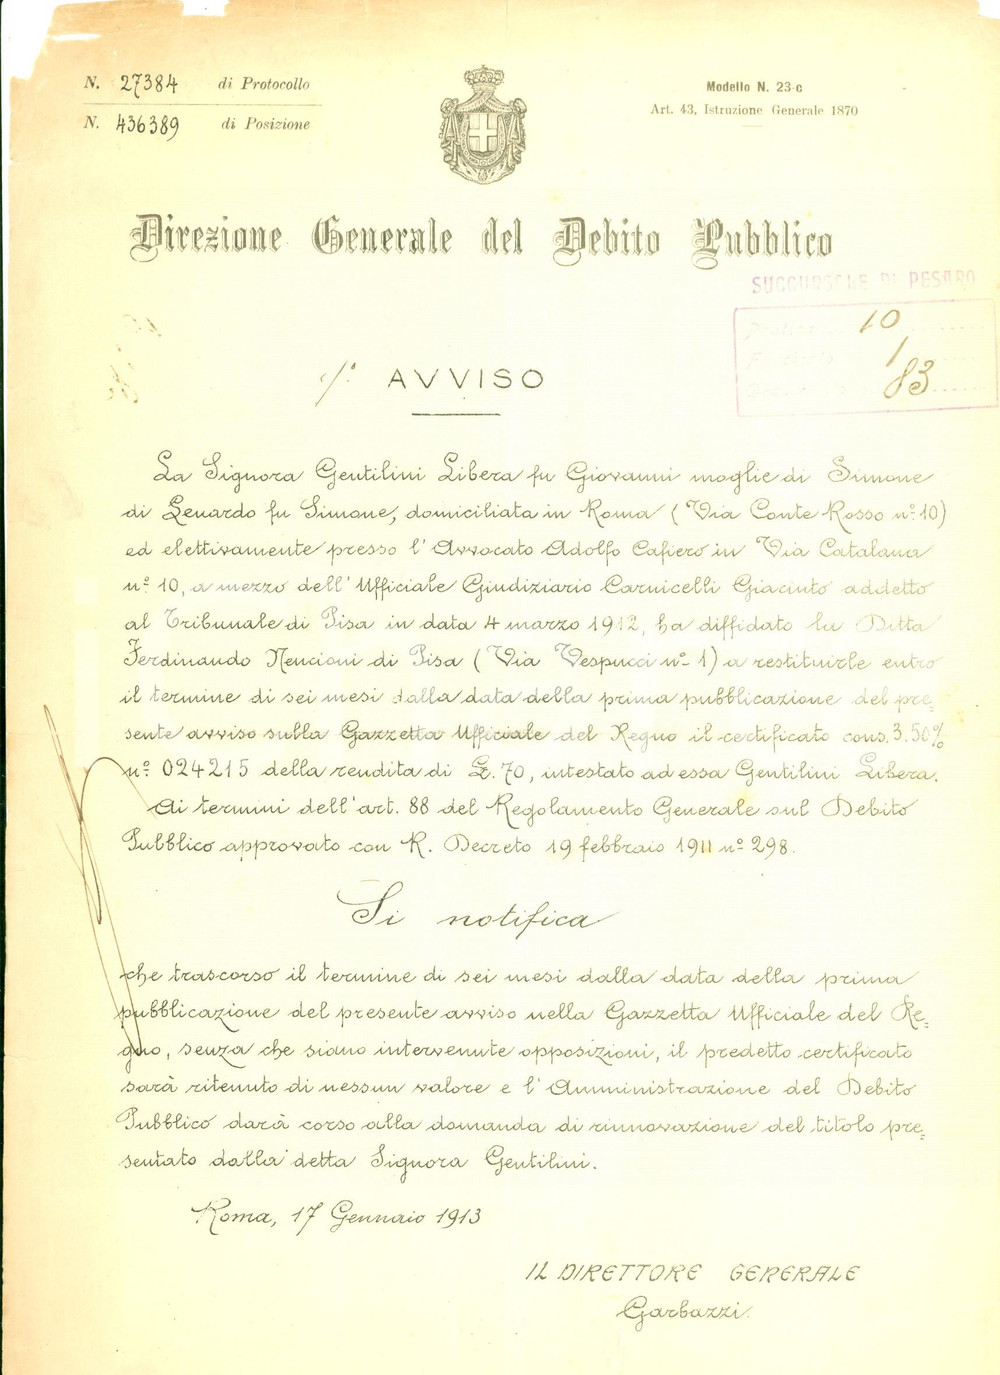 N. 27384 di Protocollo
N. 436389 di Posizione
Modello N. 23-c
Art. 43, Istruzione Generale 1870
Direzione Generale del Debito Pubblico
SUCCURSALE DI PESARO
10
1
83
1º AVVISO
La Signora Gentilini Libera fu Giovanni moglie di Simone
di Lenardo fu Simone, domiciliata in Roma (Via Conte Rosso nº 10)
ed elettivamente presso l'Avvocato Adolfo Cafiero in Via Catalana
nº 10, a mezzo dell'Ufficiale Giudiziario Carnicelli Giacinto addetto
al Tribunale di Pisa in data 4 marzo 1912, ha diffidato la Ditta
Ferdinando Nencioni di Pisa (Via Vespucci nº 1) a restituirle entro
il termine di sei mesi dalla data della prima pubblicazione del pre=
sente avviso sulla Gazzetta Ufficiale del Regno il certificato cons. 3.50%
nº 024215 della rendita di L. 70, intestato ad essa Gentilini Libera.
Ai termini dell'art. 88 del Regolamento Generale sul Debito
Pubblico approvato con R. Decreto 19 febbraio 1911 nº 298.
Si notifica
che trascorso il termine di sei mesi dalla data della prima
pubblicazione del presente avviso nella Gazzetta Ufficiale del Re=
gno, senza che siano intervenute opposizioni, il predetto certificato
sarà ritenuto di nessun valore e l'Amministrazione del Debito
Pubblico darà corso alla domanda di rinnovazione del titolo pre=
sentato dalla detta Signora Gentilini.
Roma, 17 Gennaio 1913
IL DIRETTORE GENERALE
Garbazzi.